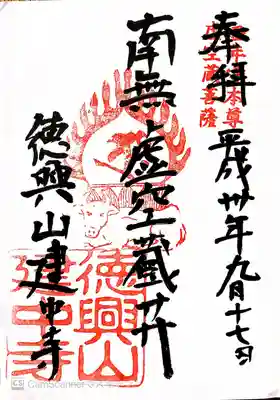 奉拝
平成卅年九月十七日
南無虚空蔵𦬇
徳興山建中寺
本尊
蔵菩薩
徳興山
建中寺
CS CamScanner